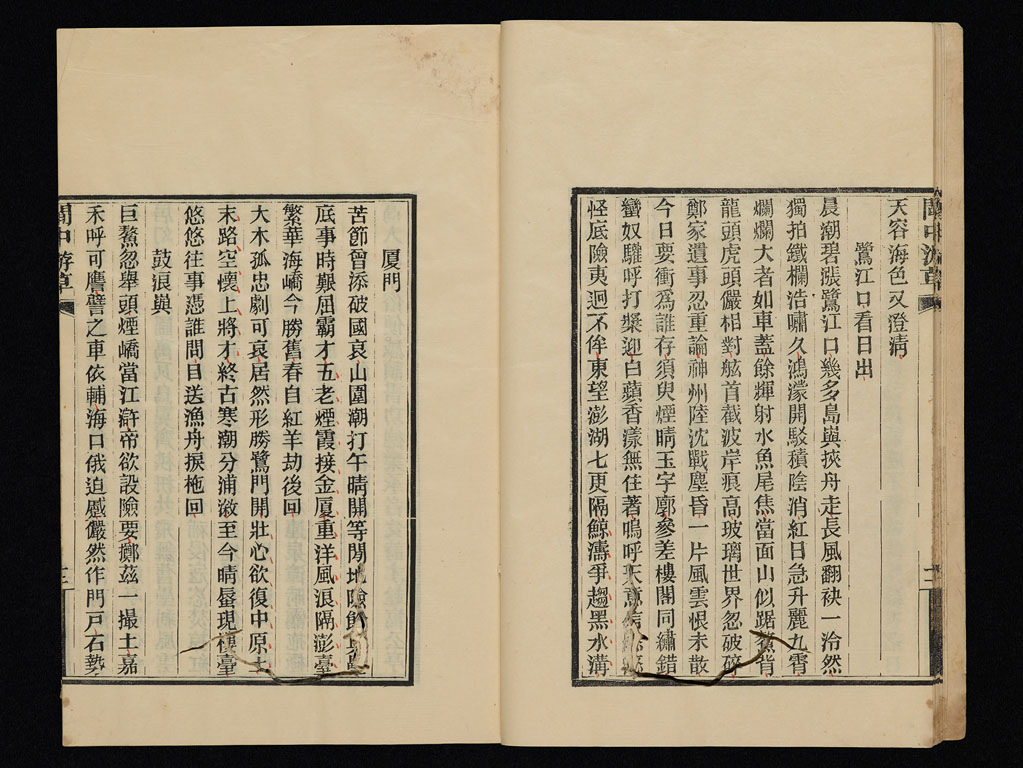 天容海色又澄清
鷺江口看日出
晨潮碧漲鷺江口幾多島與挾舟走長風翻袂一泠然
獨拍鐵欄浩嘯久鴻濛開駁積陰消紅日急升麗九霄
爛爛大者如車蓋餘輝射水魚尾焦當面山似踞鰲背
龍頭虎頭儼相對舷首截波岸痕高玻璃世界忽破碎
鄭家遺事忍重論神州陸沈戰塵昏一片風雲恨未散
今日要衝為誰存須臾煙晴玉宇廓參差樓閣同繡錯
蠻奴驩呼打槳迎白蘋香漾無住著嗚呼天意
怪底險夷迴不侔東望澎湖七更隔鯨濤爭趨黑水溝
閩中游草
十二
廈門
苦節曾添破國哀山圍潮打午晴開等閒地險
底事時艱屈霸才五老煙霞接金厦重洋風浪隔澎臺
繁華海嶠今勝舊春自紅羊劫後回
大木孤忠劇可哀居然形勝鷺門開壯心欲復中原土
末路空懷上將才終古寒潮分浦漵至今晴蜃現樓臺
悠悠往事憑誰問目送漁舟捩柁回
鼓浪嶼
巨鰲忽舉頭煙嶠當江滸帝欲設險要擲茲一撮土嘉
禾呼可鷹譬之車依輔海口俄迫蹙儼然作門戶石勢
閩中游草
十三